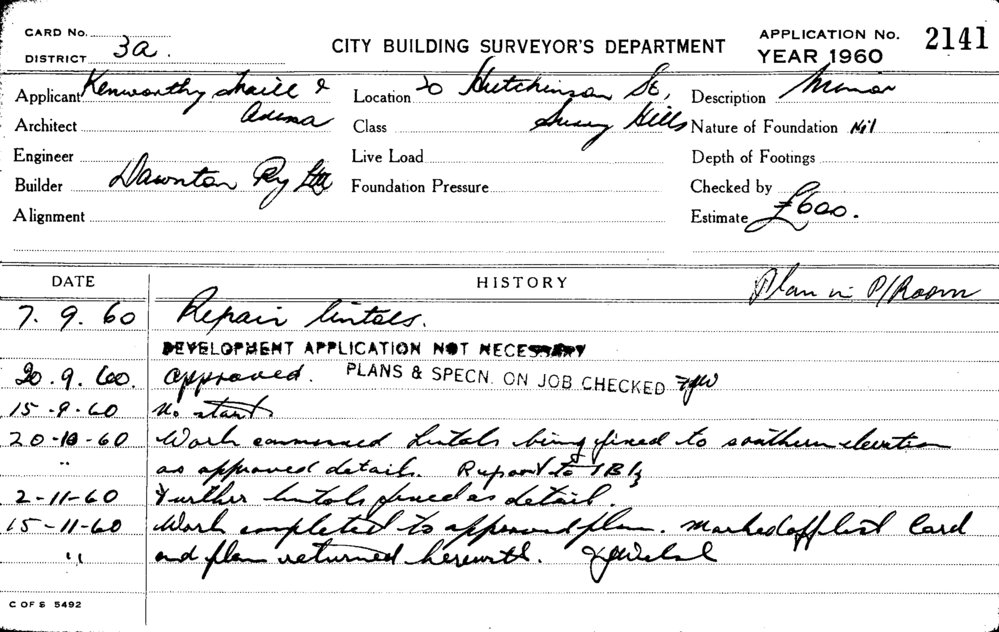 CARD No.
DISTRICT 3a.
CITY BUILDING SURVEYOR'S DEPARTMENT
APPLICATION No. 2141
YEAR 1960
Applicant Kenworthy &
Architect
Engineer
Builder Dawnton Pty Ltd
Alignment
Location 20 Hutchinson St,
Class Surry Hills
Live Load
Foundation Pressure
Description Minor
Nature of Foundation Nil
Depth of Footings
Checked by
Estimate £600.
DATE HISTORY Plan in P/Room
7. 9. 60 Repair lintols.
DEVELOPMENT APPLICATION NOT NECESSARY
20. 9. 60. approved. PLANS & SPECN. ON JOB CHECKED
15-9-60 No start.
20-10-60 Work commenced Lintols being fixed to southern elevation
" as approved details. Report to
2-11-60 Further lintols fixed as detail.
15-11-60 Work completed to approved plan. Marked off list Card
" and plan returned herewith.
C OF S 5492